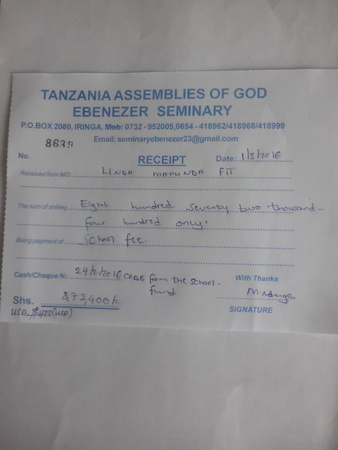 TANZANIA ASSEMBLIES OF GOD
EBENEZER SEMINARY
P.O.BOX 2080, IRINGA. Mob: 0732 - 952005,0654 - 418962/418968/418999
Email: seminaryebenezer23@gmail.com
No. 8639
RECEIPT
Date: 1/3/2016
Received from M/S LINDA MAPUNDA FIT
The sum of shilling Eight hundred seventy two thousand
four hundred only
Being payment of School fee
Cash/Cheque No 24/2/2016 from the school-
fund
With Thanks
Shs. 872,400/=
SIGNATURE